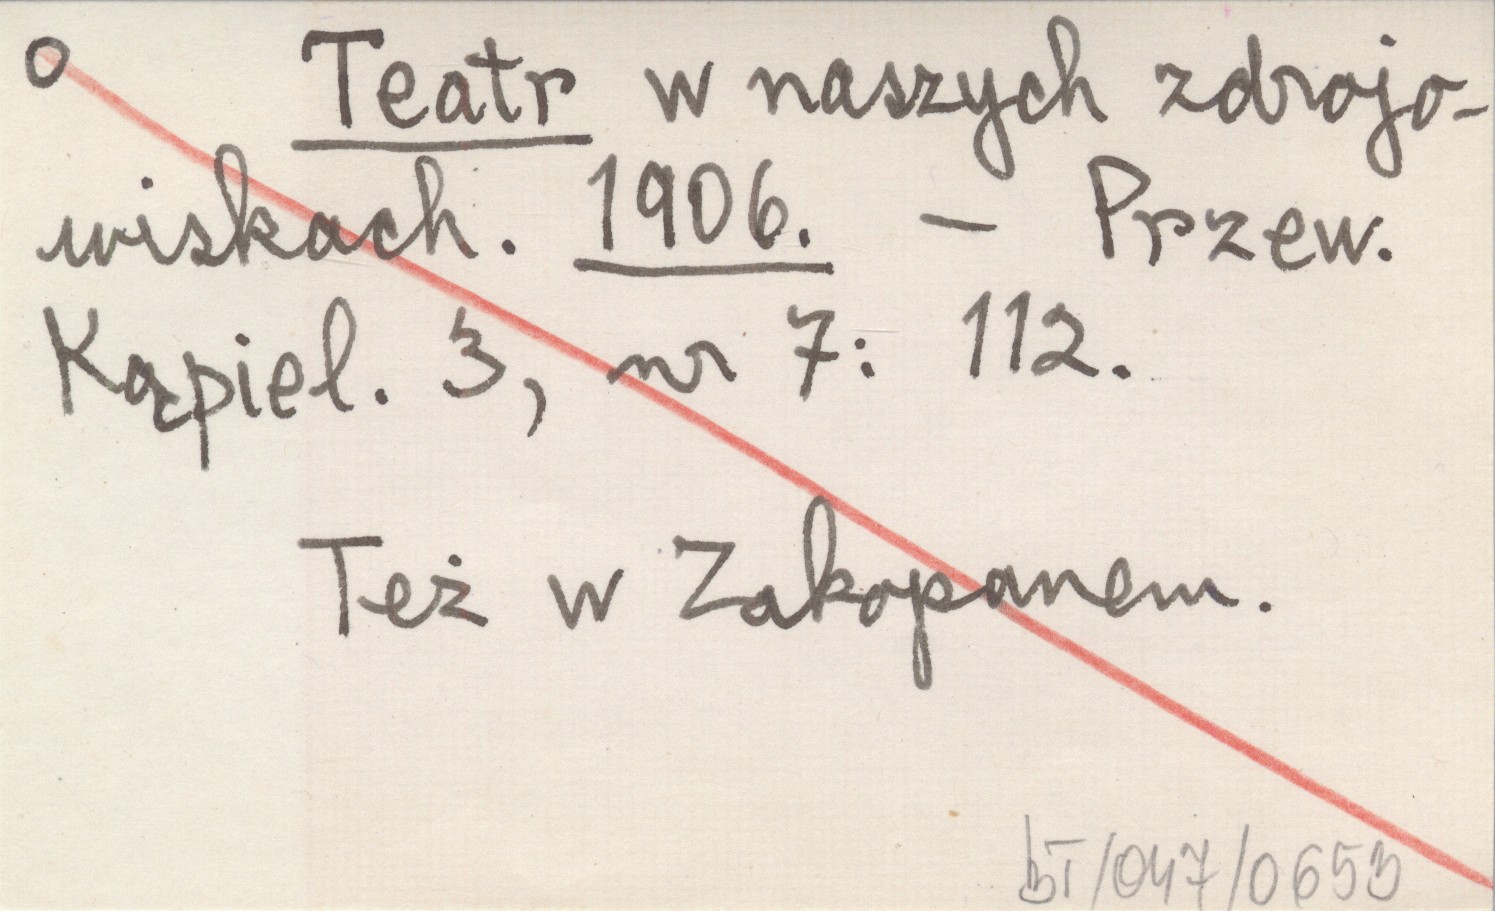 o Teatr w naszych zdrojo-
wiskach. 1906. – Przew.
Kąpiel. 3, nr 7: 112.
Też w Zakopanem.
bT/047/0653